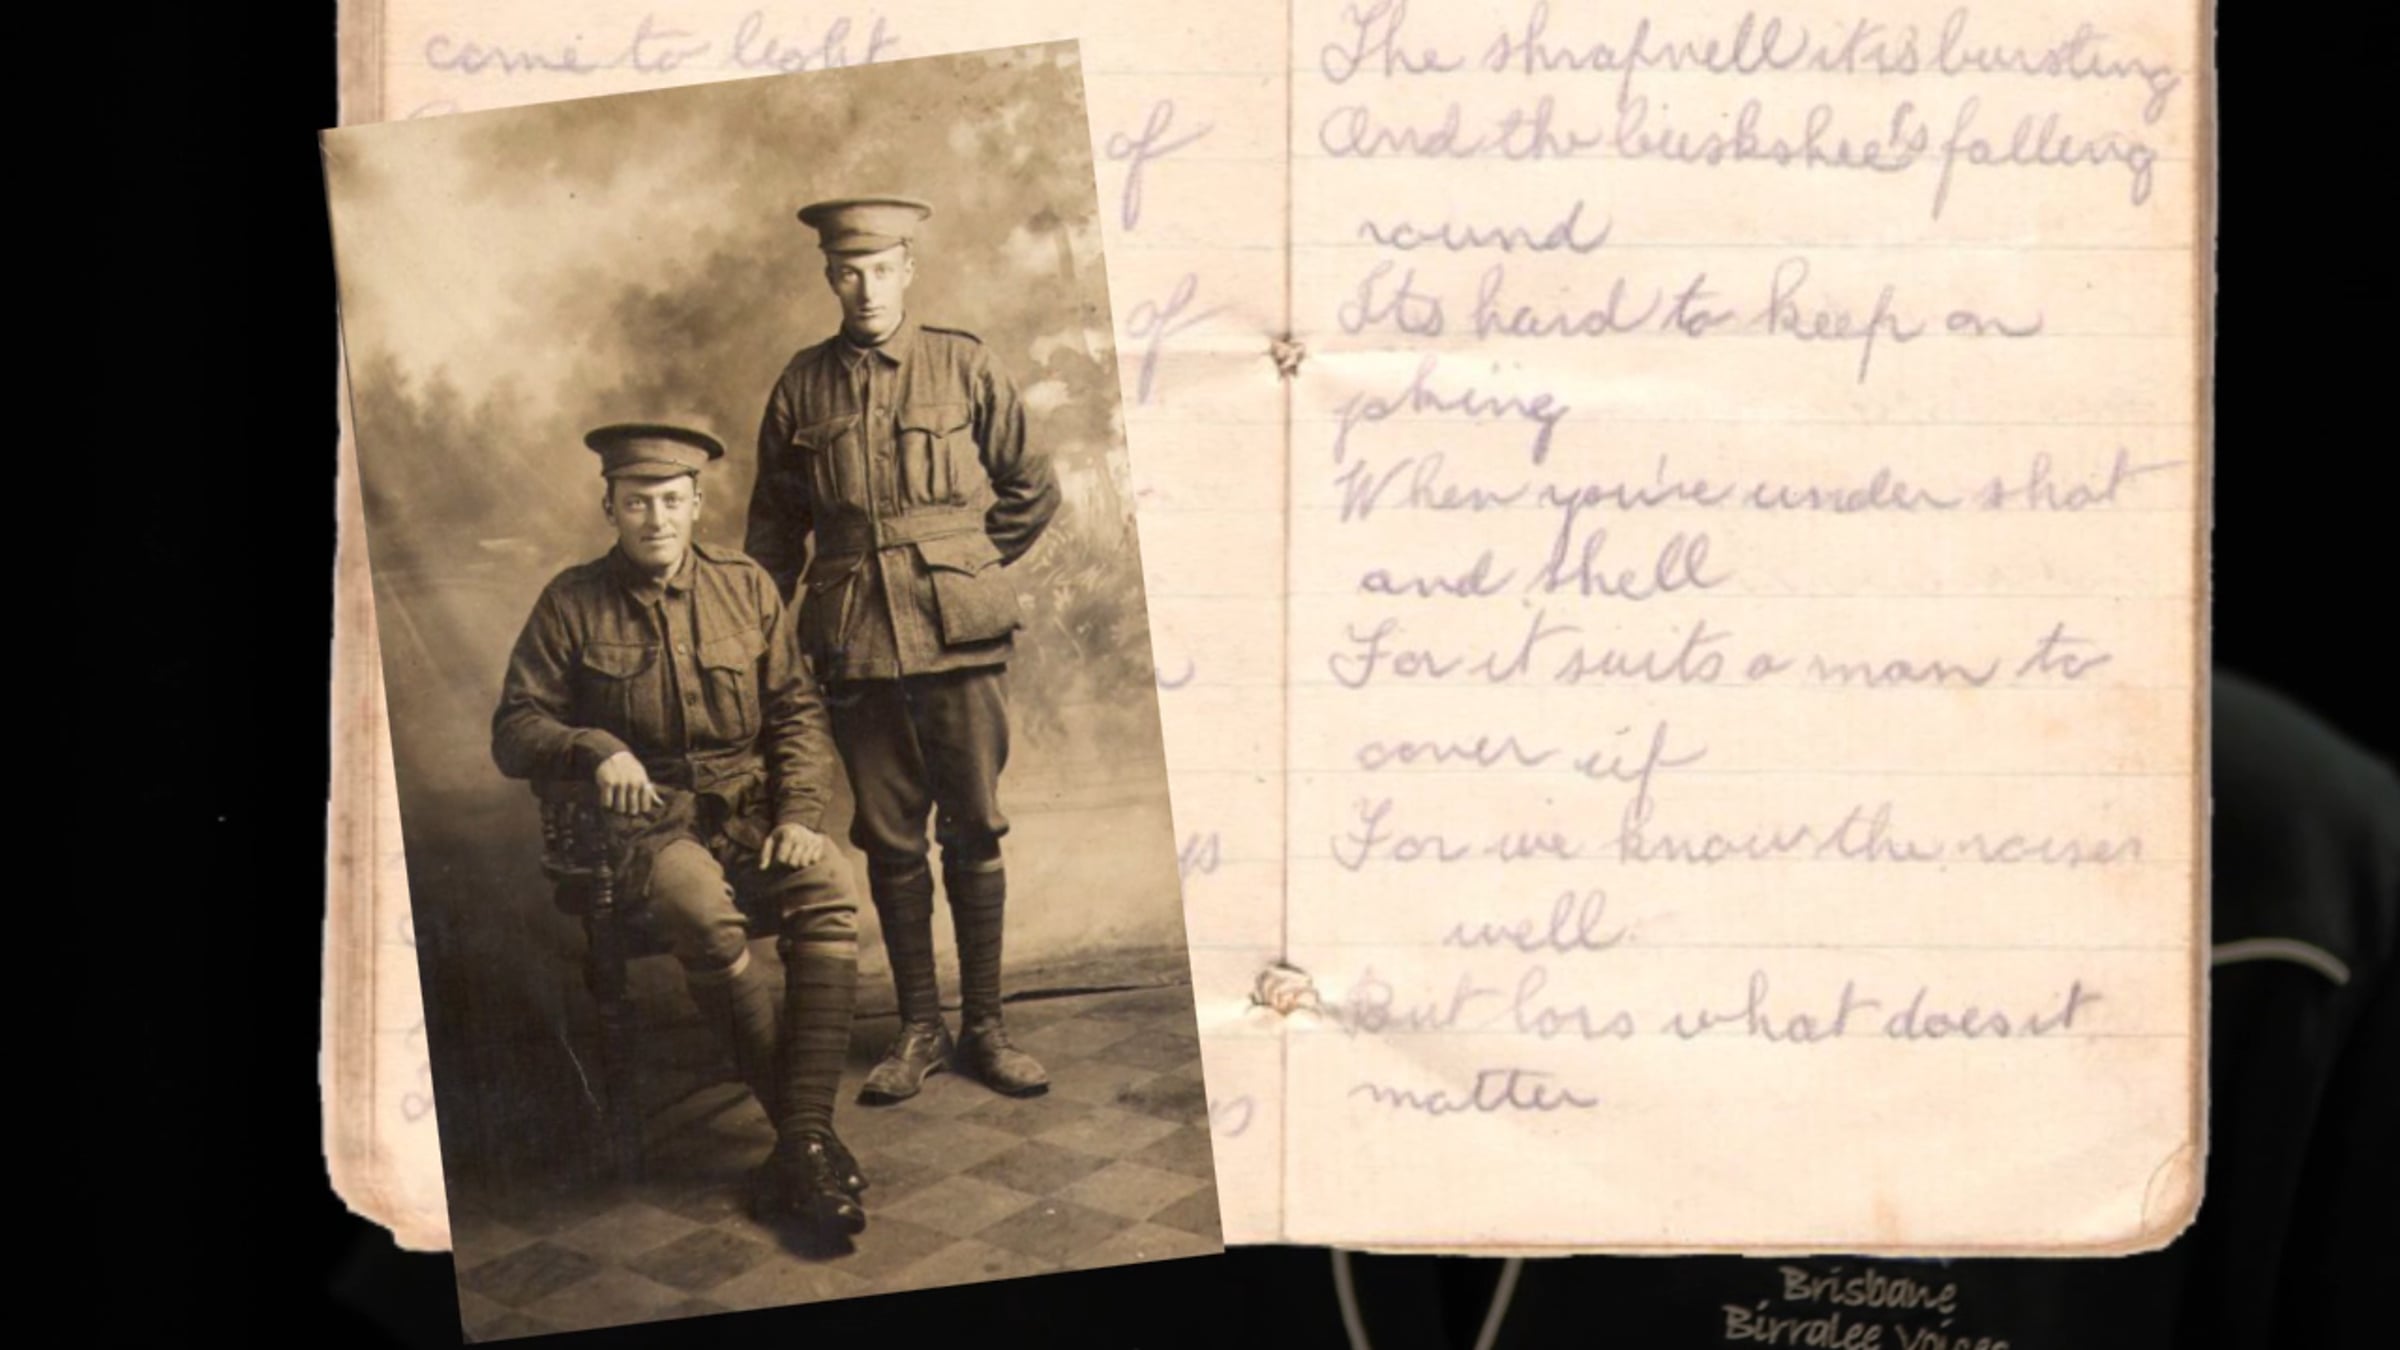 come to light
of
of
ys
The shrapnell it is bursting
And the buckshee's falling
round
Its hard to keep on
When you're under shot
and shell
For it suits a man to
cover up
For we know the noises
well
But lors what does it
matter
Brisbane
Birralee Voices